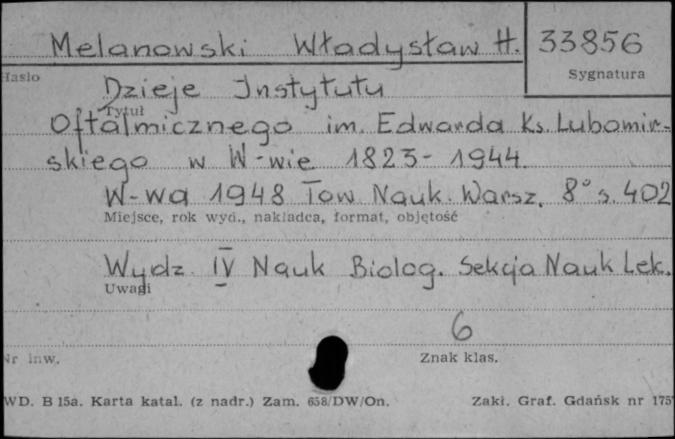 Melanowski Władysław H. 33856
Hasło Sygnatura
Dzieje Instytutu
Tytuł
Oftalmicznego im. Edwarda Ks. Lubomir-
skiego w W-wie 1823-1944.
W-wa 1948 Tow. Nauk. Warsz. 8° s. 402
Miejsce, rok wyd., nakładca, format, objętość
Wydz. IV Nauk Biolog. Sekcja Nauk Lek.
Uwagi
6
Nr inw. Znak klas.
WD. B 15a. Karta katal. (z nadr.) Zam. 658/DW/On. Zakł. Graf. Gdańsk nr 175